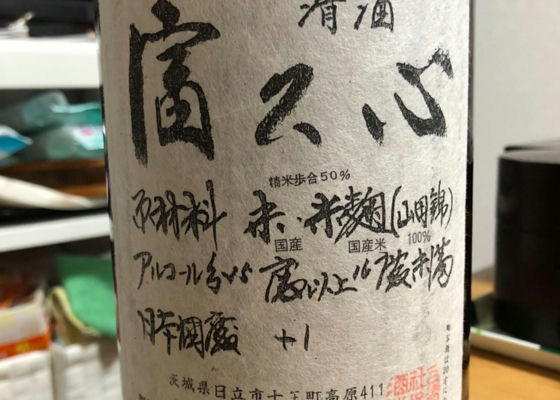 清酒
富久心
精米歩合50%
原材料 米、米麹(山田錦)
国産 国産米 100%
アルコール分15度以上16度未満
日本國産 +1
茨城県日立市十王町高原411